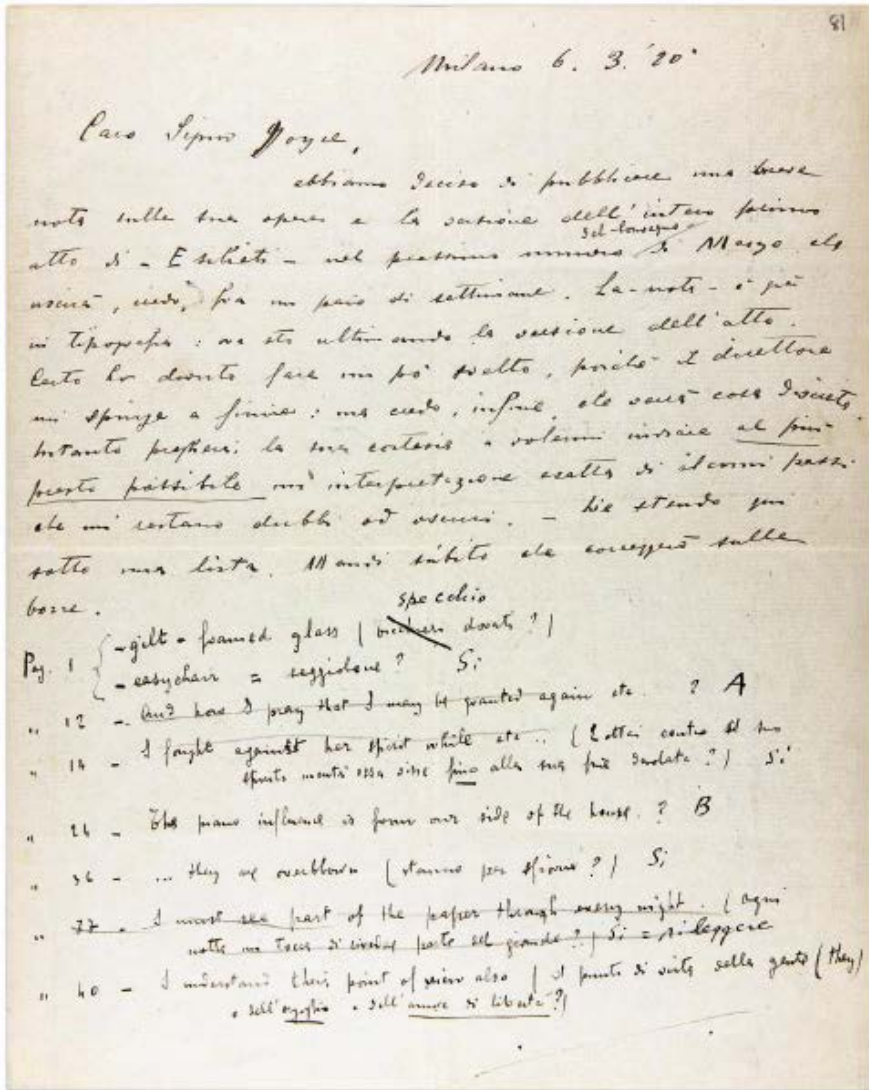 81
Milano 6. 3. '20
Caro Signor Joyce,
abbiamo deciso di pubblicare una breve
nota sulla sua opera e la versione dell'intero primo
del Convegno
atto di - Esiliati - nel prossimo numero di Marzo che
uscirà, credo, fra un paio di settimane. La - nota - è già
in tipografia: ora sto ultimando la versione dell'atto.
Certo ho dovuto fare un pò svelto, poichè il direttore
mi spinge a finire: ma credo, infine, che verrà cosa discreta.
Intanto pregherei la sua cortesia a volermi inviare al più
presto possibile un'interpretazione esatta di alcuni passi
che mi restano dubbi od oscuri. - Le stendo qui
sotto una lista. Mandi sùbito che correggerò sulle
bozze.
specchio
Pag. 1 - gilt-framed glass (bicchieri dorati?)
- easychair = seggiolone? Si
" 12 - And how I pray that I may be granted again etc. ? A
" 14 - I fought against her spirit while etc.. (Lottai contro il suo
spirito mentr'essa visse fino alla sua fine desolata?) Si
" 26 - The piano influence is from our side of the house. ? B
" 36 - ... they are overblown (stanno per sfiorire?) Si
" 37 - I must see part of the paper through every night. (Ogni
notte mi tocca di rivedere parte del giornale?) Si = rileggere
" 40 - I understand their point of view also (il punto di vista della gente (they)
o dell'orgoglio e dell'amore di libertà?)